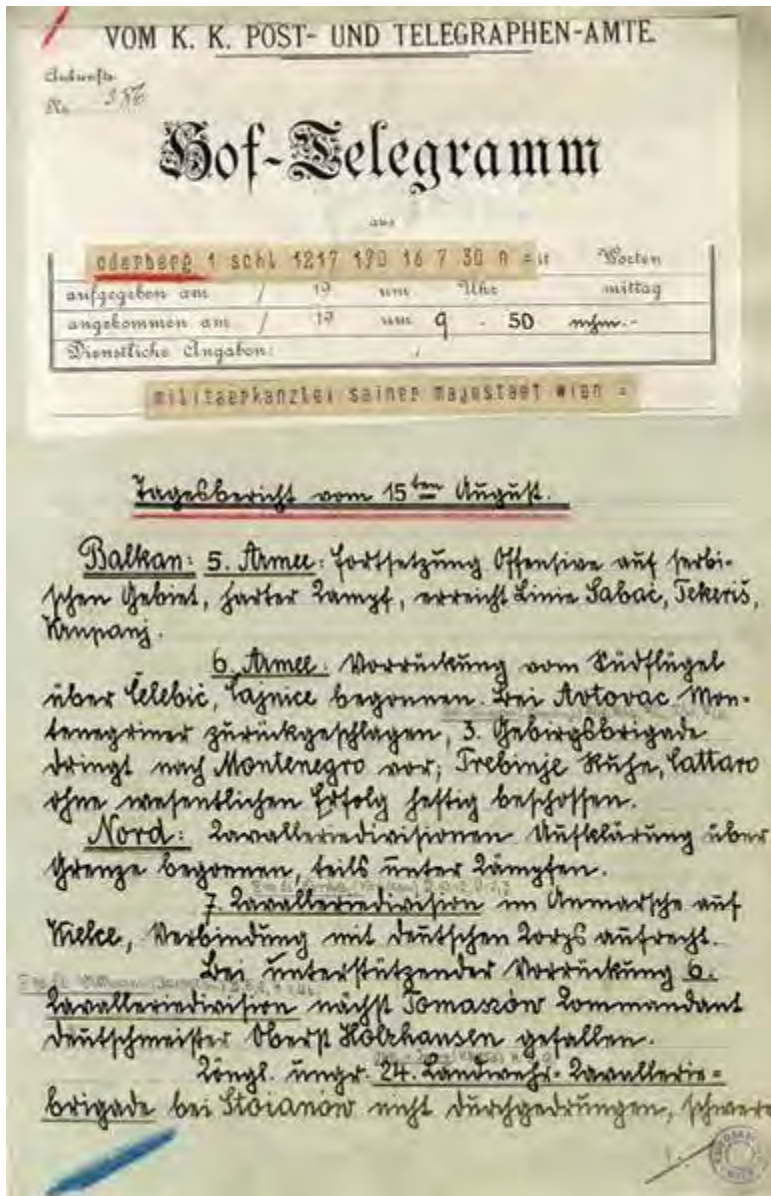 VOM K. K. POST- UND TELEGRAPHEN-AMTE.
Ankunfts-
No.
Hof-Telegramm
aus
oderberg 1 schl 1217 190 16 7 30 n = it Worten
aufgegeben am / 19 um Uhr mittag
angekommen am / 19 um 9 - 50 nchm.-
Dienstliche Angaben:
militaerkanzlei sainer majestaet wien =
Tagesbericht vom 15ten August.
Balkan: 5. Armee: Fortsetzung Offensive auf serbi-
schen Gebiet, harter Kampf, erreicht Linie Sabač, Tekeriš,
Krupanj.
6. Armee: Vorrückung vom Südflügel
über Čelebić, Čajnice begonnen. Bei Avtovac Mon-
tenegriner zurückgeschlagen, 3. Gebirgsbrigade
dringt nach Montenegro vor; Trebinje Ruhe, Cattaro
ohne wesentlichen Erfolg heftig beschossen.
Nord: Kavalleriedivisionen Aufklärung über
Grenze begonnen, teils unter Kämpfen.
7. Kavalleriedivision im Anmarsche auf
Kielce, Verbindung mit deutschen Korps aufrecht.
Bei unterstützender Vorrückung 6.
Kavalleriedivision nächst Tomaszów Kommandant
Deutschmeister Oberst Holzhausen gefallen.
Köngl. ungr. 24. Landwehr-Kavallerie=
brigade bei Stoianów nicht durchgedrungen, schwere